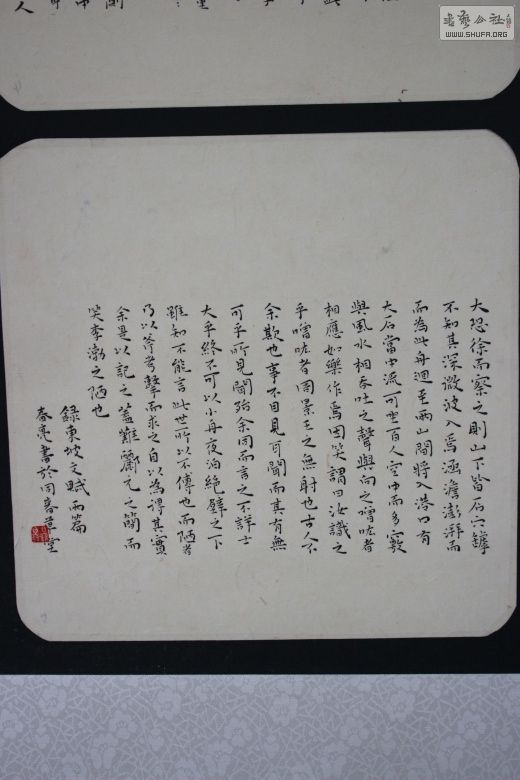 書藝公社
WWW.SHUFA.ORG
大恐徐而察之則山下皆石穴罅
不知其深微波入焉涵澹澎湃而
而為此舟迴至兩山間將入港口有
大石當中流可坐百人空中而多竅
與風水相吞吐之聲與向之噌吰者
相應如樂作焉因笑謂曰汝識之
乎噌吰者周景王之無射也古人不
余欺也事不目見耳聞而其有無
可乎所見聞殆余同而言之不詳士
大夫終不可以小舟夜泊絕壁之下
雖知不能言此世所以不傳也而陋者
乃以斧考擊而求之自以為得其實
余是以記之蓋歎酈元之簡而
笑李渤之陋也
錄東坡文賦兩篇
春亮書於同春草堂